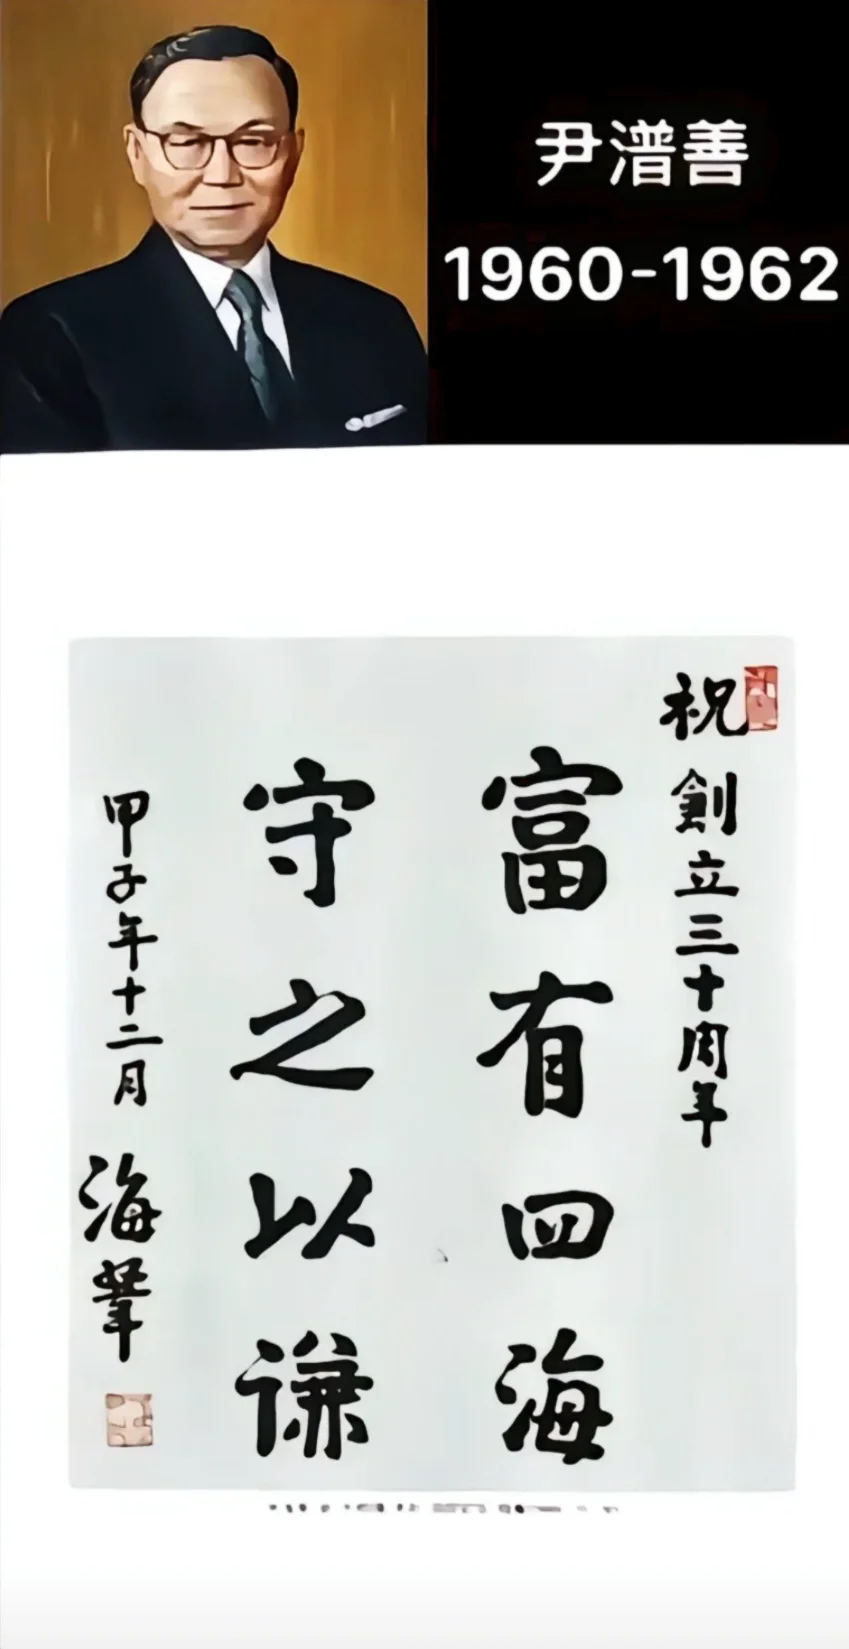 尹潽善
1960-1962
祝
創立三十周年
富有四海
守之以謙
甲子年十二月
海葦